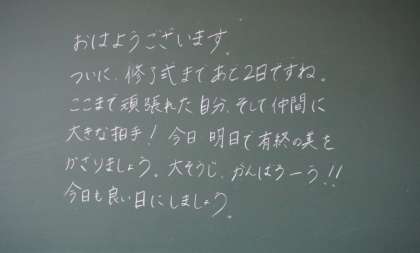 おはようございます。
ついに、修了式まであと2日ですね。
ここまで頑張れた自分、そして仲間に
大きな拍手！今日 明日で有終の美を
かざりましょう。大そうじ、がんばろーう!!
今日も良い日にしましょう。